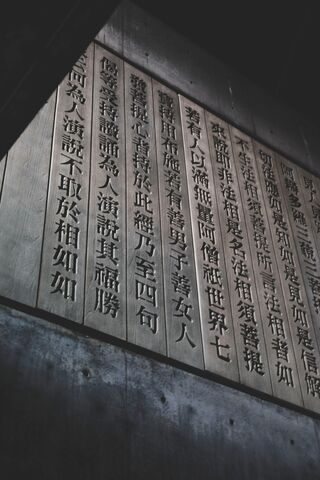 阿耨多羅三藐三
切法應如是知如是見如是信解
不生法相須菩提所言法相者如
來說即非法相是名法相須菩提
若有人以滿無量阿僧祇世界七
寶持用布施若有善男子善女人
發菩提心者持於此經乃至四句
偈等受持讀誦為人演說其福勝
云何為人演說不取於相如如